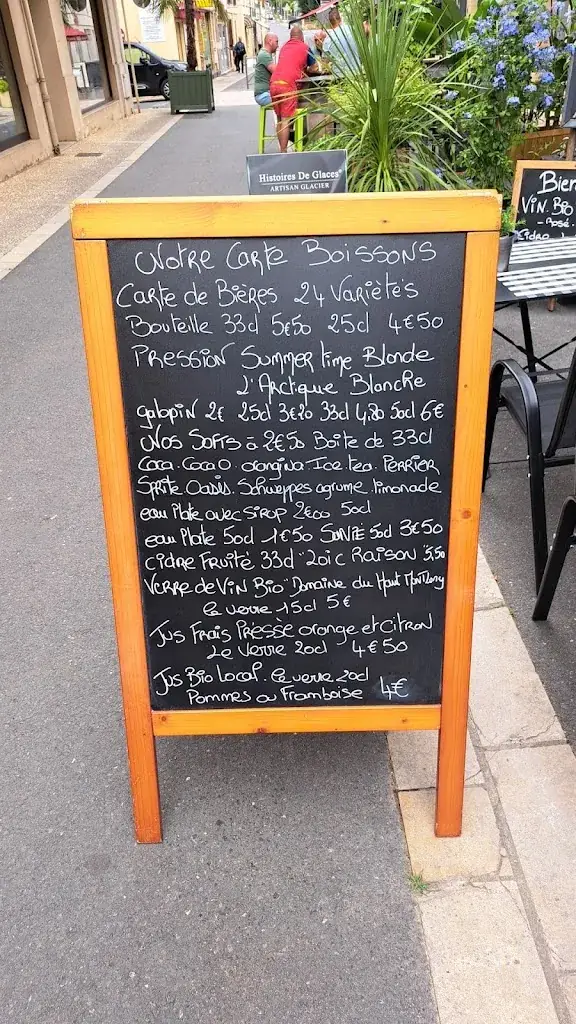 Histoires De Glaces
ARTISAN GLACIER
Bier
VIN. Bio
- Rosé.
Cidre
Notre Carte Boissons
Carte de Bières 24 Variétés
Bouteille 33cl 5€50 25cl 4€50
PRESSION Summer time Blonde
L'Arctique Blanche
galopin 2€ 25cl 3€20 33cl 4,80 50cl 6€
Nos Softs à 2€50 Boîte de 33cl
Coca. Coca O. orangina. Ice tea. PERRIER
Sprite Oasis. Schweppes agrume. limonade
eau Plate avec SIROP 2€00 50cl
eau Plate 50cl 1€50 50cl 3€50
Cidre Fruité 33cl "Loïc Raison" 5,50
Verre de Vin Bio "Domaine du Haut
Le verre 15cl 5€
Jus Frais Pressé orange et Citron
Le Verre 20cl 4€50
Jus Bio Local. Le verre 20cl
Pommes ou Framboise 4€